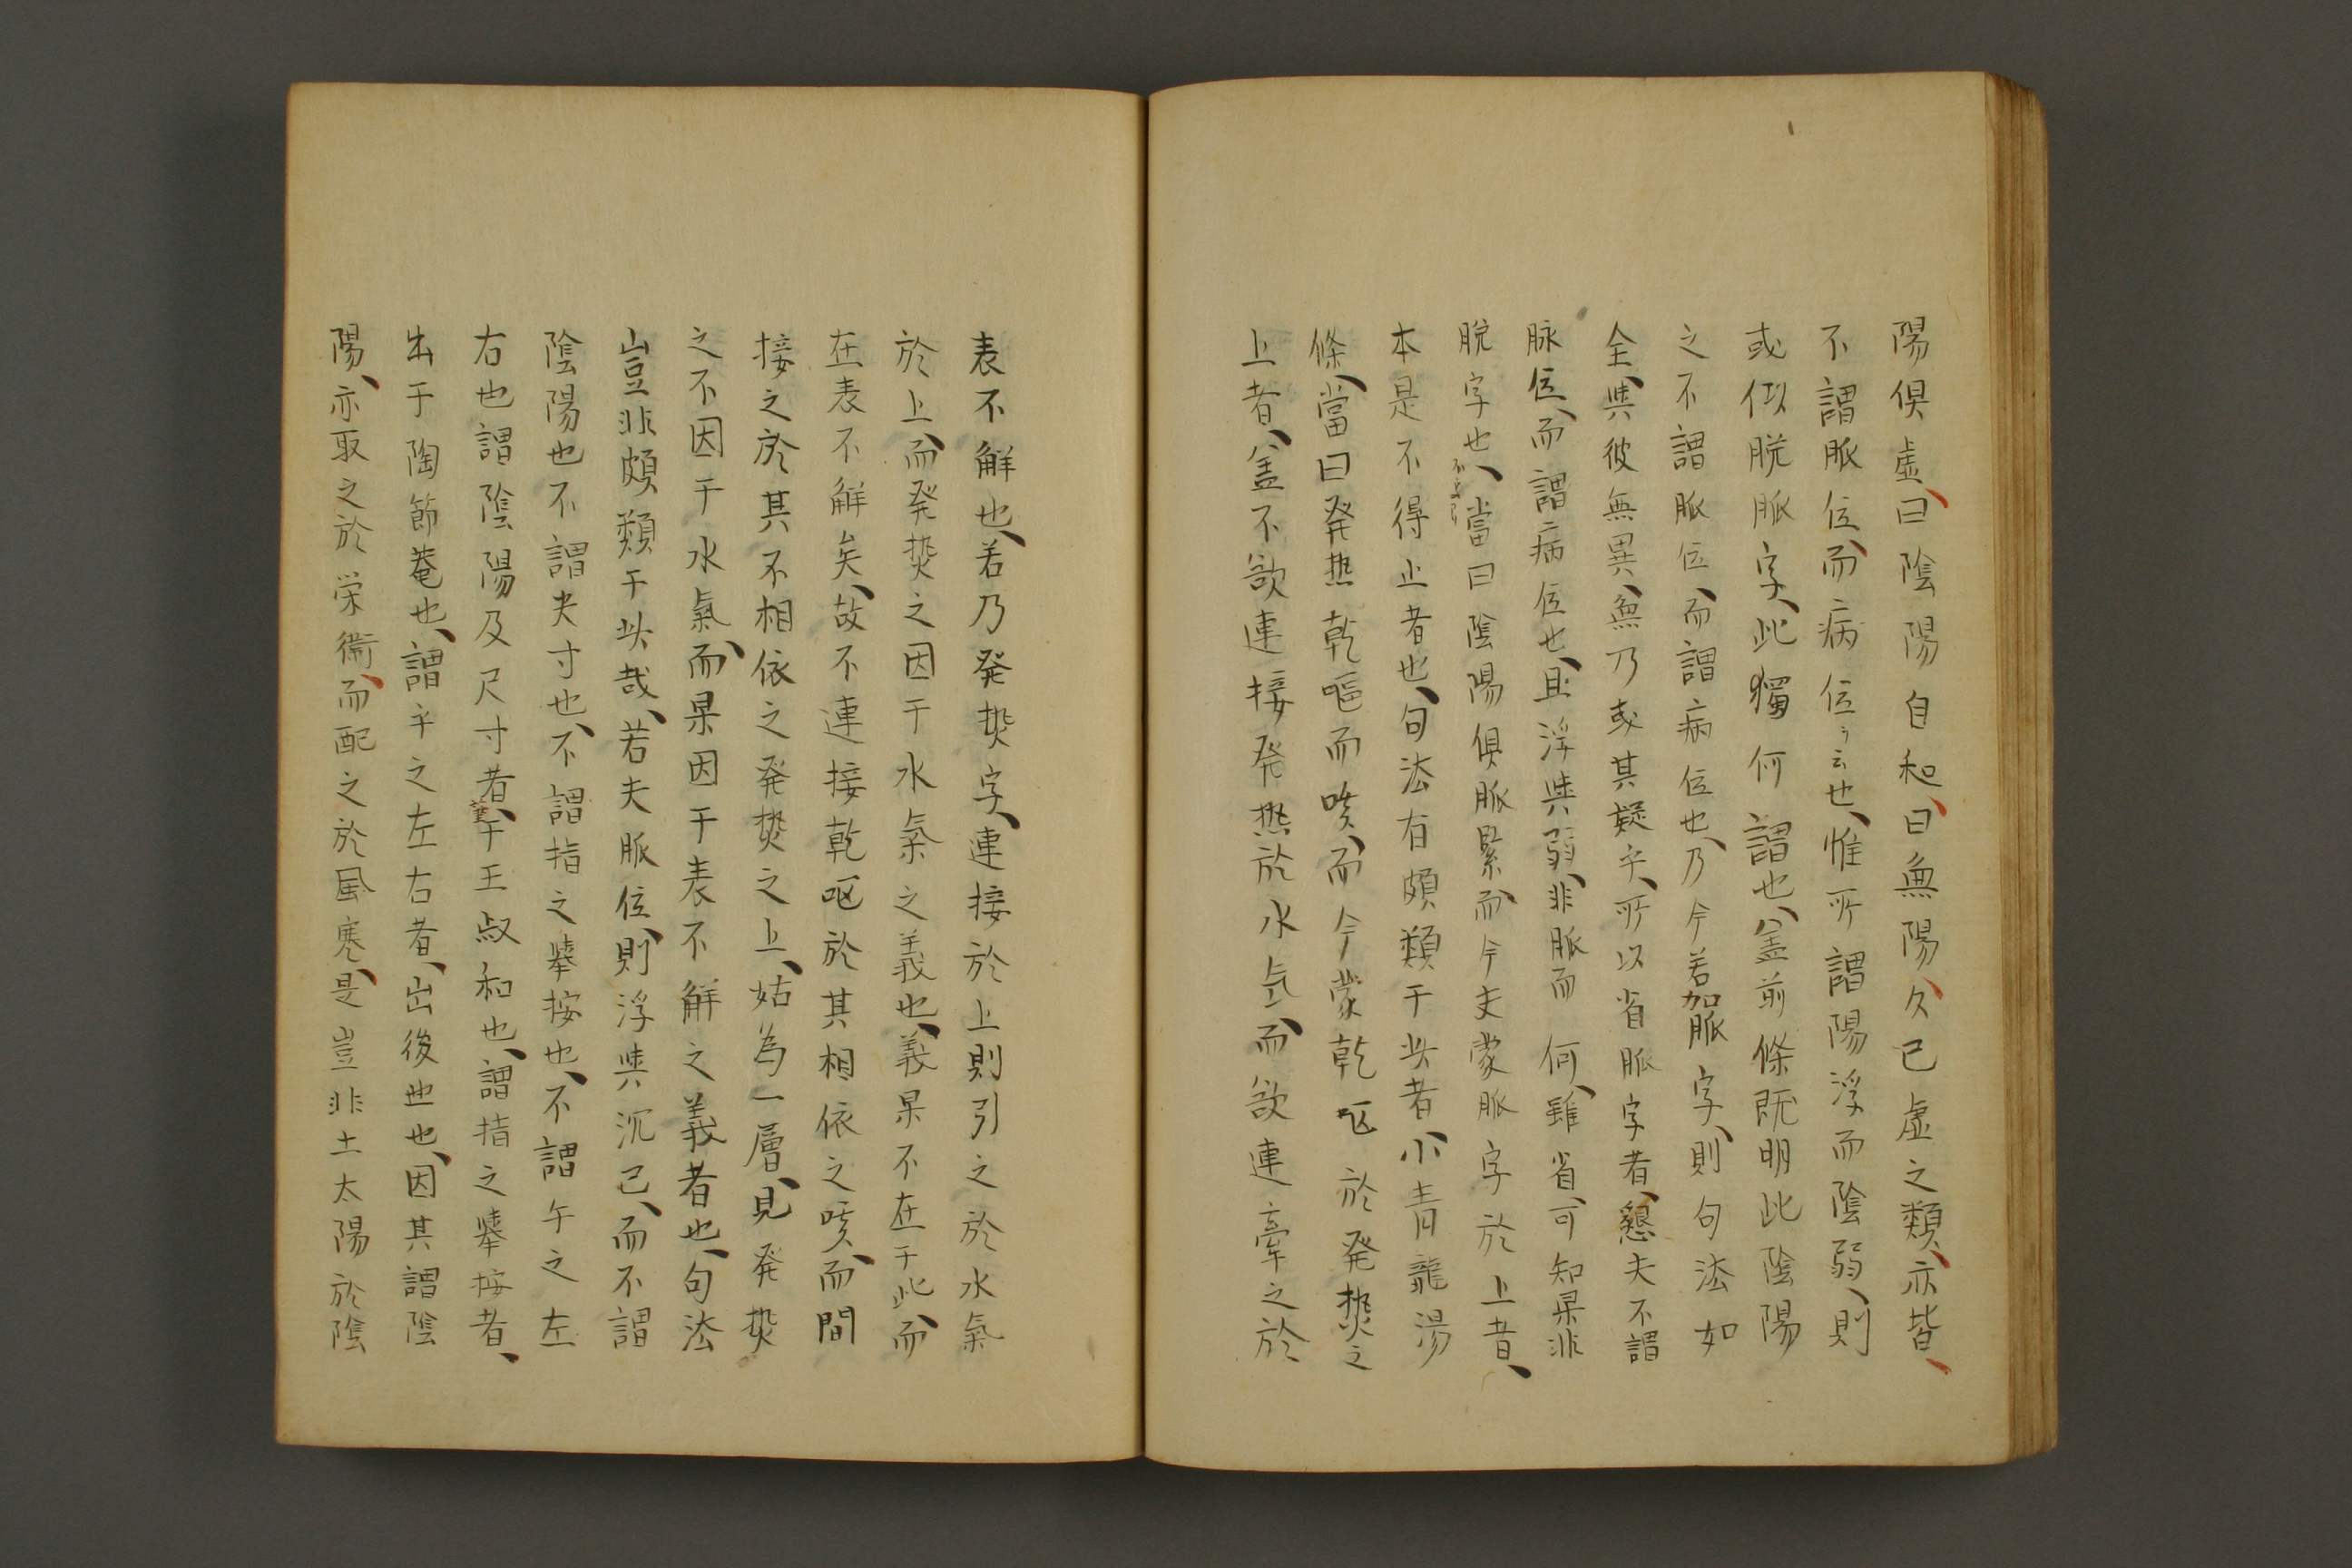 陽俱虛、曰陰陽自和、曰無陽、久已虛之類、亦皆、
不謂脈位、而病位云云也、惟所謂陽浮而陰弱、則
或似脫脈字、此獨何謂也、盖前條既明此陰陽
之不謂脈位、而謂病位也、乃今若加脈字、則句法如
全、與彼無異、無乃或其疑乎、所以省脈字者、懇夫不謂
脉位、而謂病位也、且浮與弱、非脈而何、雖省、可知果非
脫字也、當曰陰陽俱脈緊、而今夫蒙脈字於上者、
本是不得止者也、句法有頗類于此者、小青龍湯
條、當曰発热乾嘔而咳、而今蒙乾呕於発热之
上者、盖不欲連接発热於水気、而欲連牽之於
表不解也、若乃発热字、連接於上則引之於水氣
於上、而発热之因于水氣之義也、義果不在于此、而
在表不解矣、故不連接乾呕於其相依之咳、而間
接之於其不相依之発热之上、姑為一層、見発热
之不因于水氣、而果因于表不解之義者也、句法
豈非頗類于此哉、若夫脈位、則浮與沉已、而不謂
陰陽也、不謂夫寸也、不謂指之舉按也、不謂午之左
右也、謂陰陽及尺寸者、于王叔和也、謂指之舉按者、
出于陶節菴也、謂手之左右者、出後世也、因其謂陰
陽、亦取之於栄衞、而配之於風寒、是豈非土太陽於陰